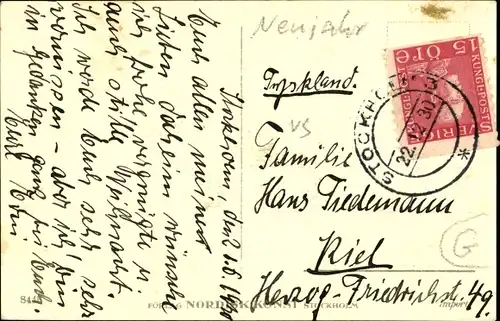 Neujahr
Stockholm den
Euch allen meinen
Lieben daheim wünsche
ich frohe vergnügte u.
auch stille Weihnacht.
Ich werde Euch sehr
vermissen - aber ich bin
in Gedanken ganz bei Euch.
Eure
Tyskland.
VS
Familie
Hans Tiedemann
Kiel
Herzog-Friedrichstr. 49.
G
15 ÖRE
KUNGL POST
SVERIGE
STOCKHOLM
22.12.30
NORDISK KONST STOCKHOLM
Import